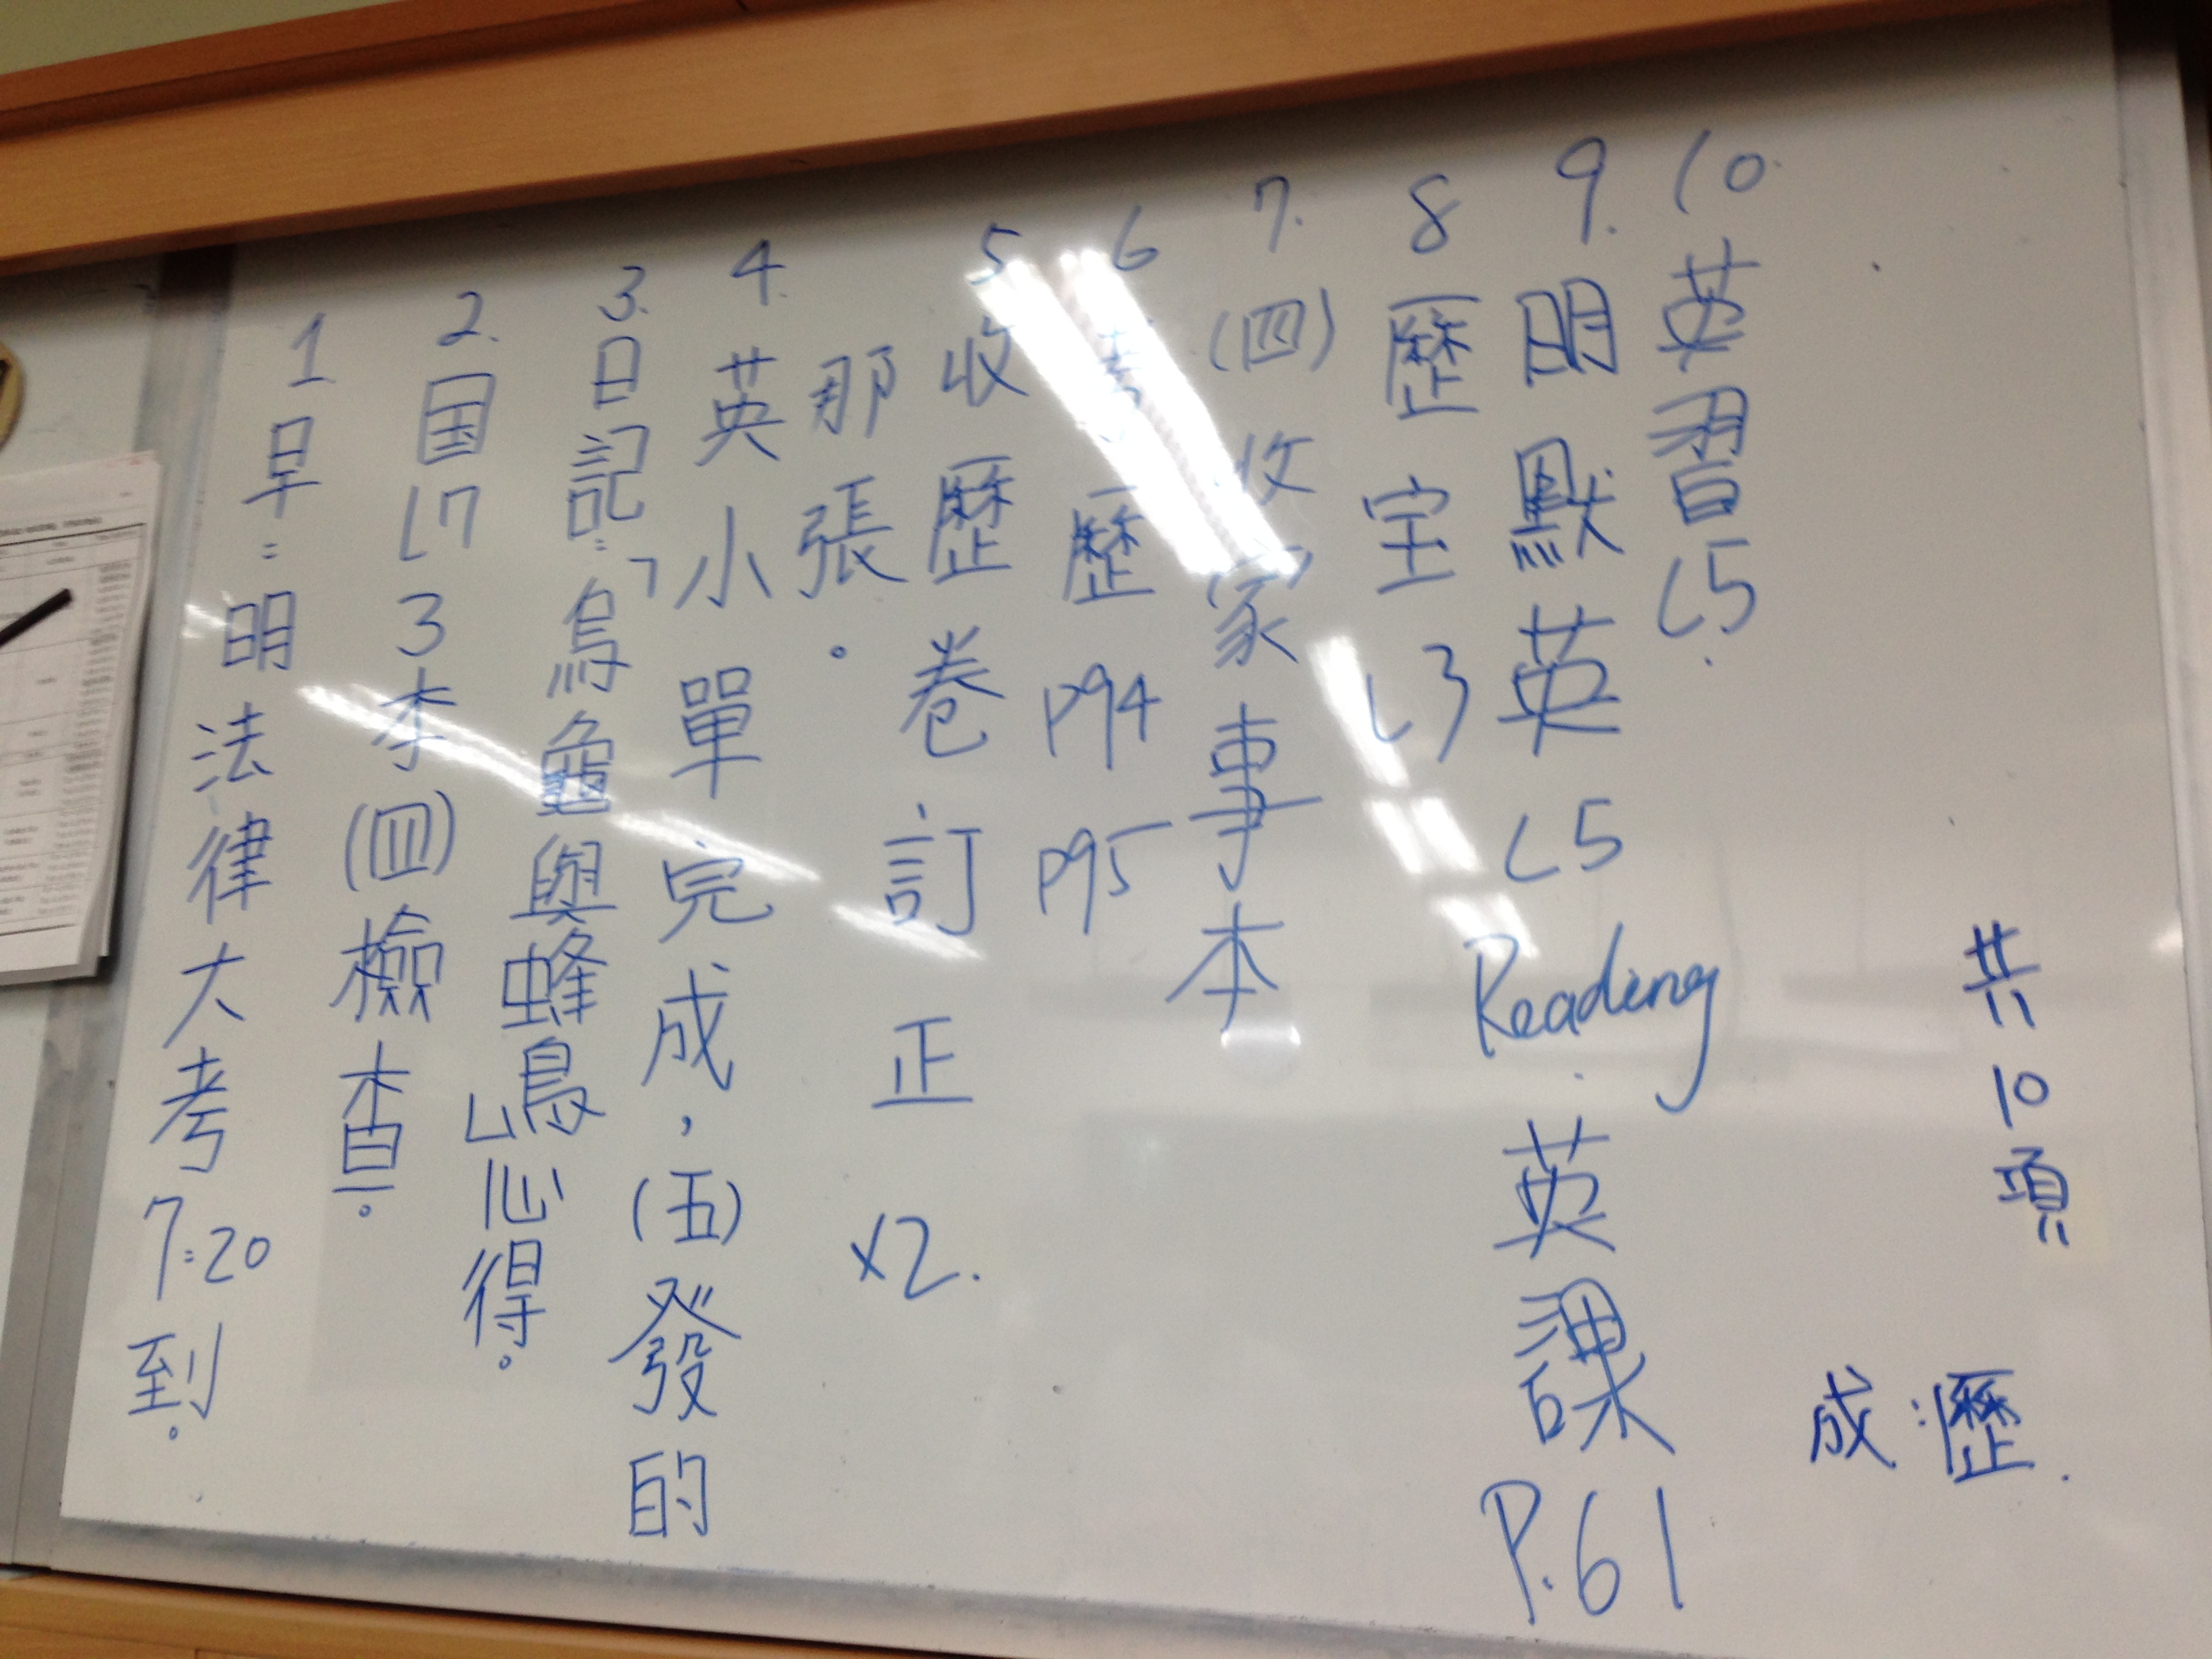 1.早:明法律大考7:20到。
2.国L7 3李(四)檢查。
3.日記:「烏龜與蜂鳥」心得。
4.英小單完成,(五)發的
那張。
5.收歷卷訂正x2.
6.考歷P94 P95
7.(四)收家事本
8歷宝L3
9.明默英L5 Reading.英課P.61
10.英習L5.
共10項
成:歷.